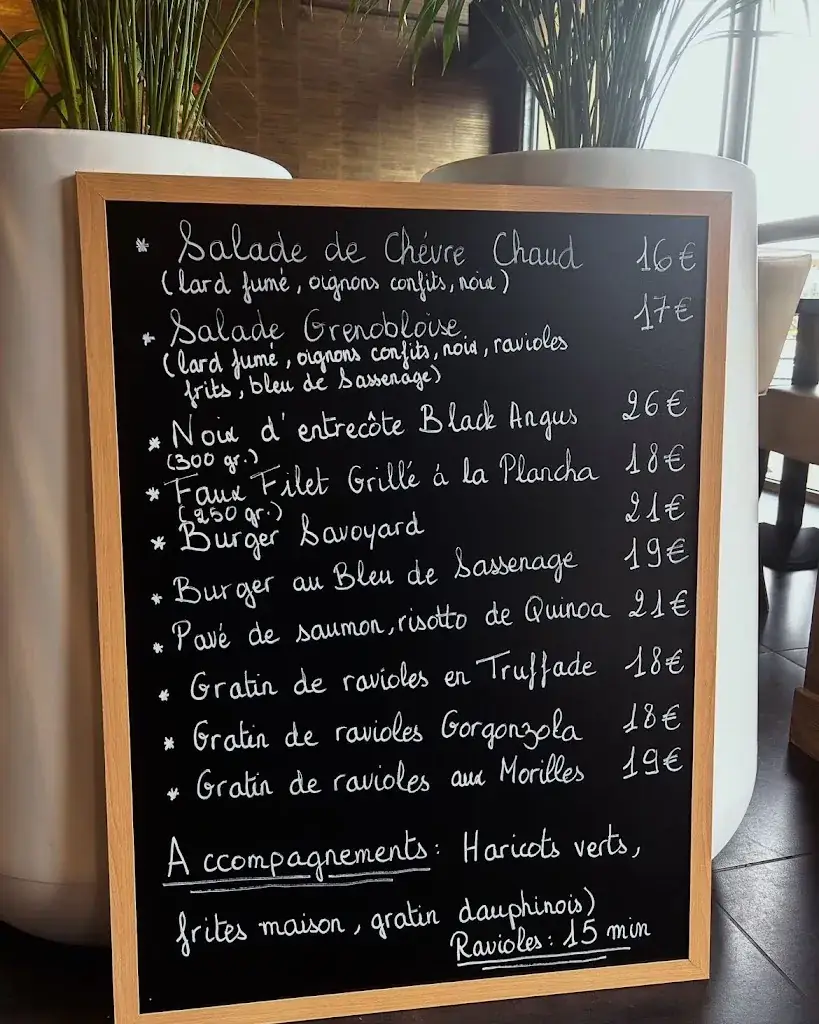 * Salade de Chévre Chaud 16€
(lard fumé, oignons confits, noix)
* Salade Grenobloise 17€
(lard fumé, oignons confits, noix, ravioles
frits, bleu de Sassenage)
* Noix d'entrecôte Black Angus 26€
(300 gr.)
* Faux Filet Grillé á la Plancha 18€
(250 gr.)
* Burger Savoyard 21€
* Burger au Bleu de Sassenage 19€
* Pavé de saumon, risotto de Quinoa 21€
* Gratin de ravioles en Truffade 18€
* Gratin de ravioles Gorgonzola 18€
* Gratin de ravioles aux Morilles 19€
Accompagnements: Haricots verts,
frites maison, gratin dauphinois)
Ravioles: 15 min